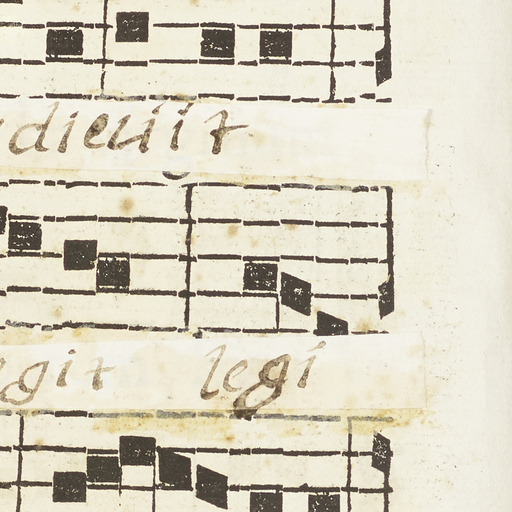 dieuit
git legi